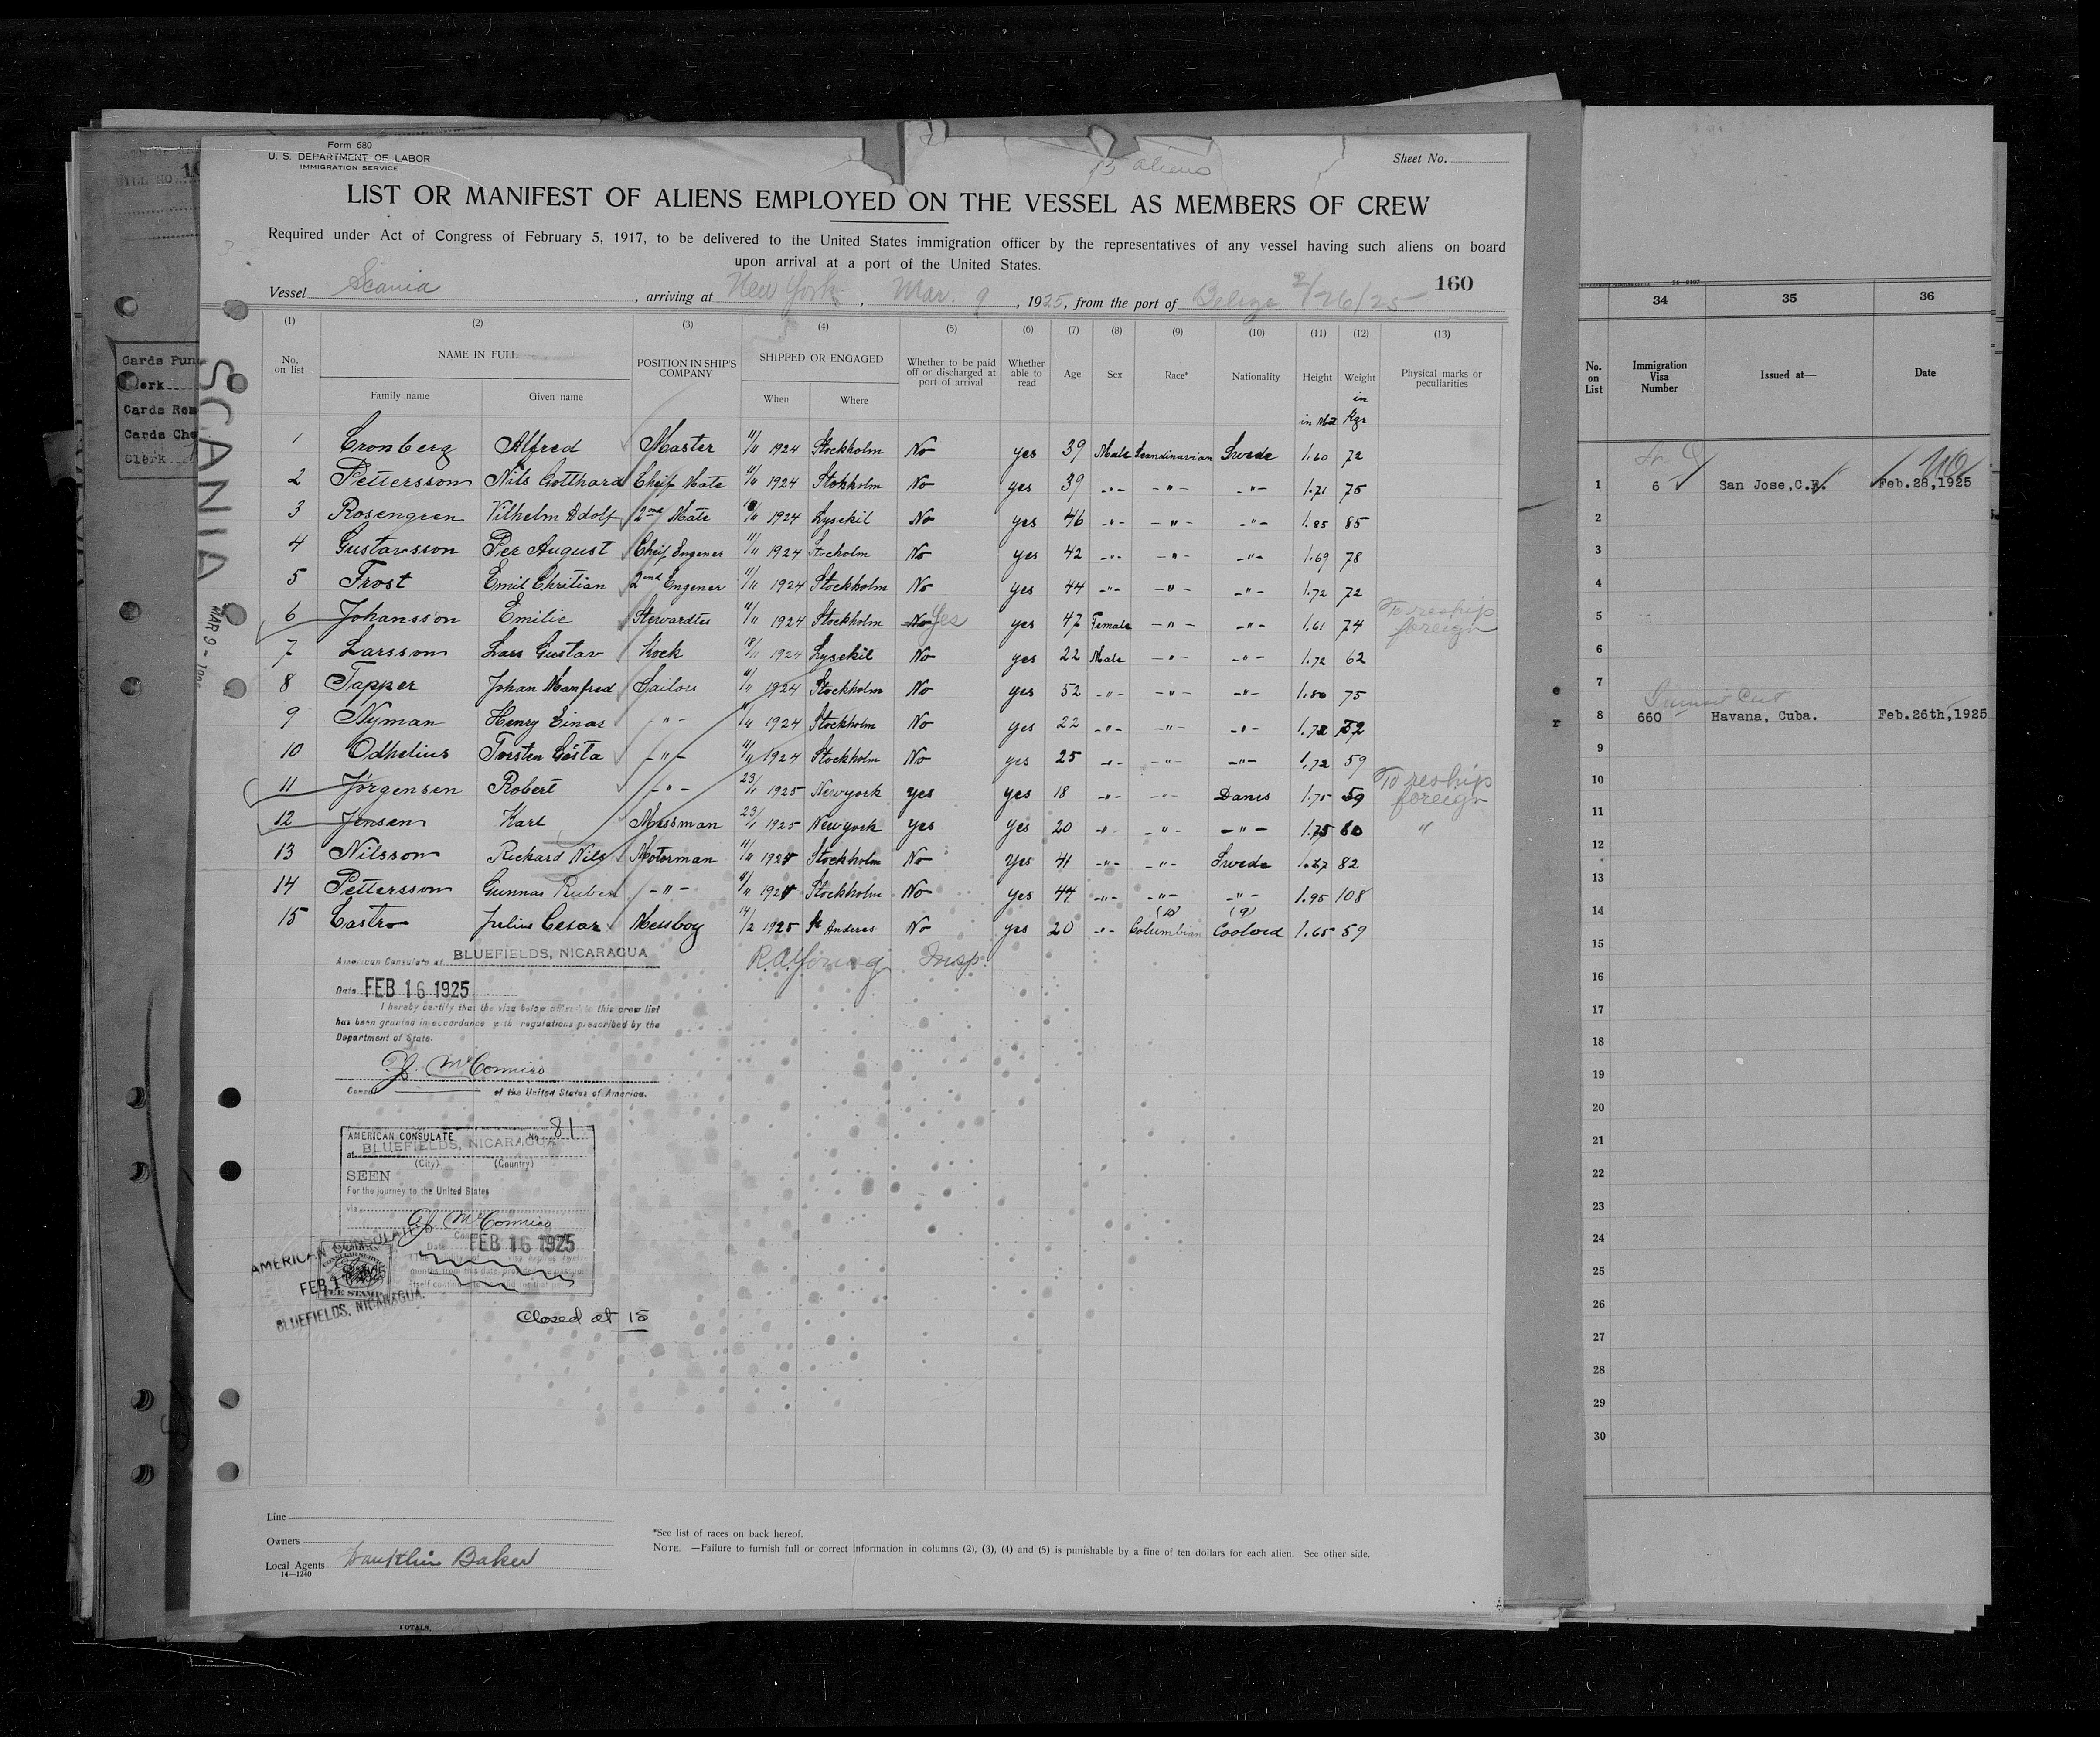 Form 680
U. S. DEPARTMENT OF LABOR
IMMIGRATION SERVICE
13 aliens
Sheet No.
LIST OR MANIFEST OF ALIENS EMPLOYED ON THE VESSEL AS MEMBERS OF CREW
Required under Act of Congress of February 5, 1917, to be delivered to the United States immigration officer by the representatives of any vessel having such aliens on board
upon arrival at a port of the United States.
160
Vessel Scania, arriving at New York, Mar. 9, 1925, from the port of Belize 2/26/25
(1) (2) (3) (4) (5) (6) (7) (8) (9) (10) (11) (12) (13)
No. on list NAME IN FULL POSITION IN SHIP'S COMPANY SHIPPED OR ENGAGED Whether to be paid off or discharged at port of arrival Whether able to read Age Sex Race* Nationality Height Weight Physical marks or peculiarities
Family name Given name When Where in Met in Kgr
1 Cronberg Alfred Master 11/11 1924 Stockholm No yes 39 Male Scandinavian Swede 1.60 72
2 Pettersson Nils Gotthard Cheif Mate 11/11 1924 Stokholm No yes 39 -"- -"- -"- 1.71 75
3 Rosengren Vilhelm Adolf 2nd Mate 1924 Lysekil No yes 46 -"- -"- -"- 1.85 85
4 Gustavsson Per August Cheif Engener 11/11 1924 Stocholm No yes 42 -"- -"- -"- 1.69 78
5 Frost Emil Chritian 2nd Engener 11/11 1924 Stockholm No yes 44 -"- -"- -"- 1.72 72
6 Johansson Emilie Stewardtes 11/11 1924 Stockholm No Yes yes 47 Female -"- -"- 1.61 74 To reship foreign
7 Larsson Lars Gustav Kock 18/11 1924 Lysekil No yes 22 Male -"- -"- 1.72 62
8 Tapper Johan Manfred Sailor 11/11 1924 Stockholm No yes 52 -"- -"- -"- 1.80 75
9 Nyman Henry Einar -"- 11/11 1924 Stockholm No yes 22 -"- -"- -"- 1.72 52
10 Odhelius Torsten Gösta -"- 11/11 1924 Stockholm No yes 25 -"- -"- -"- 1.72 59
11 Jörgensen Robert -"- 23/1 1925 Newyork yes yes 18 -"- -"- Danes 1.75 59 To reship foreign
12 Jensen Karl Messman 23/1 1925 Newyork yes yes 20 -"- -"- -"- 1.75 60 "
13 Nilsson Rickard Nils Motorman 11/11 1924 Stockholm No yes 41 -"- -"- Swede 82
14 Pettersson Gunnar Ruben -"- 11/11 1924 Stockholm No yes 44 -"- -"- -"- 1.95 108
(10) (9)
15 Castro Julius Cesar Messboy 14/2 1925 St Andres No yes 20 -"- Columbian Coolord 1.65 59
R.A. Young Insp.
American Consulate at BLUEFIELDS, NICARAGUA
Date FEB 16 1925
I hereby certify that the visa below affixed to this crew list
has been granted in accordance with regulations prescribed by the
Department of State.
McConnico
Consul of the United States of America.
AMERICAN CONSULATE No. 81
at BLUEFIELDS, NICARAGUA
(City) (Country)
SEEN
For the journey to the United States
via
McConnico
Date FEB 16 1925
AMERICAN CONSULATE
FEB 17 1925
BLUEFIELDS, NICARAGUA.
FEE STAMP
Closed at 15
Line
Owners
Local Agents Franklin Baker
14—1240
*See list of races on back hereof.
NOTE. —Failure to furnish full or correct information in columns (2), (3), (4) and (5) is punishable by a fine of ten dollars for each alien. See other side.
SCANIA
MAR 9 -
Cards Pun
Clerk
Cards Rem
Cards Che
Clerk
34 35 36
No. on List Immigration Visa Number Issued at— Date
1 6 San Jose, C.R. Feb.28,1925
2
3
4
5
6
7
8 660 Havana, Cuba. Feb.26th,1925
9
10
11
12
13
14
15
16
17
18
19
20
21
22
23
24
25
26
27
28
29
30
TOTALS.